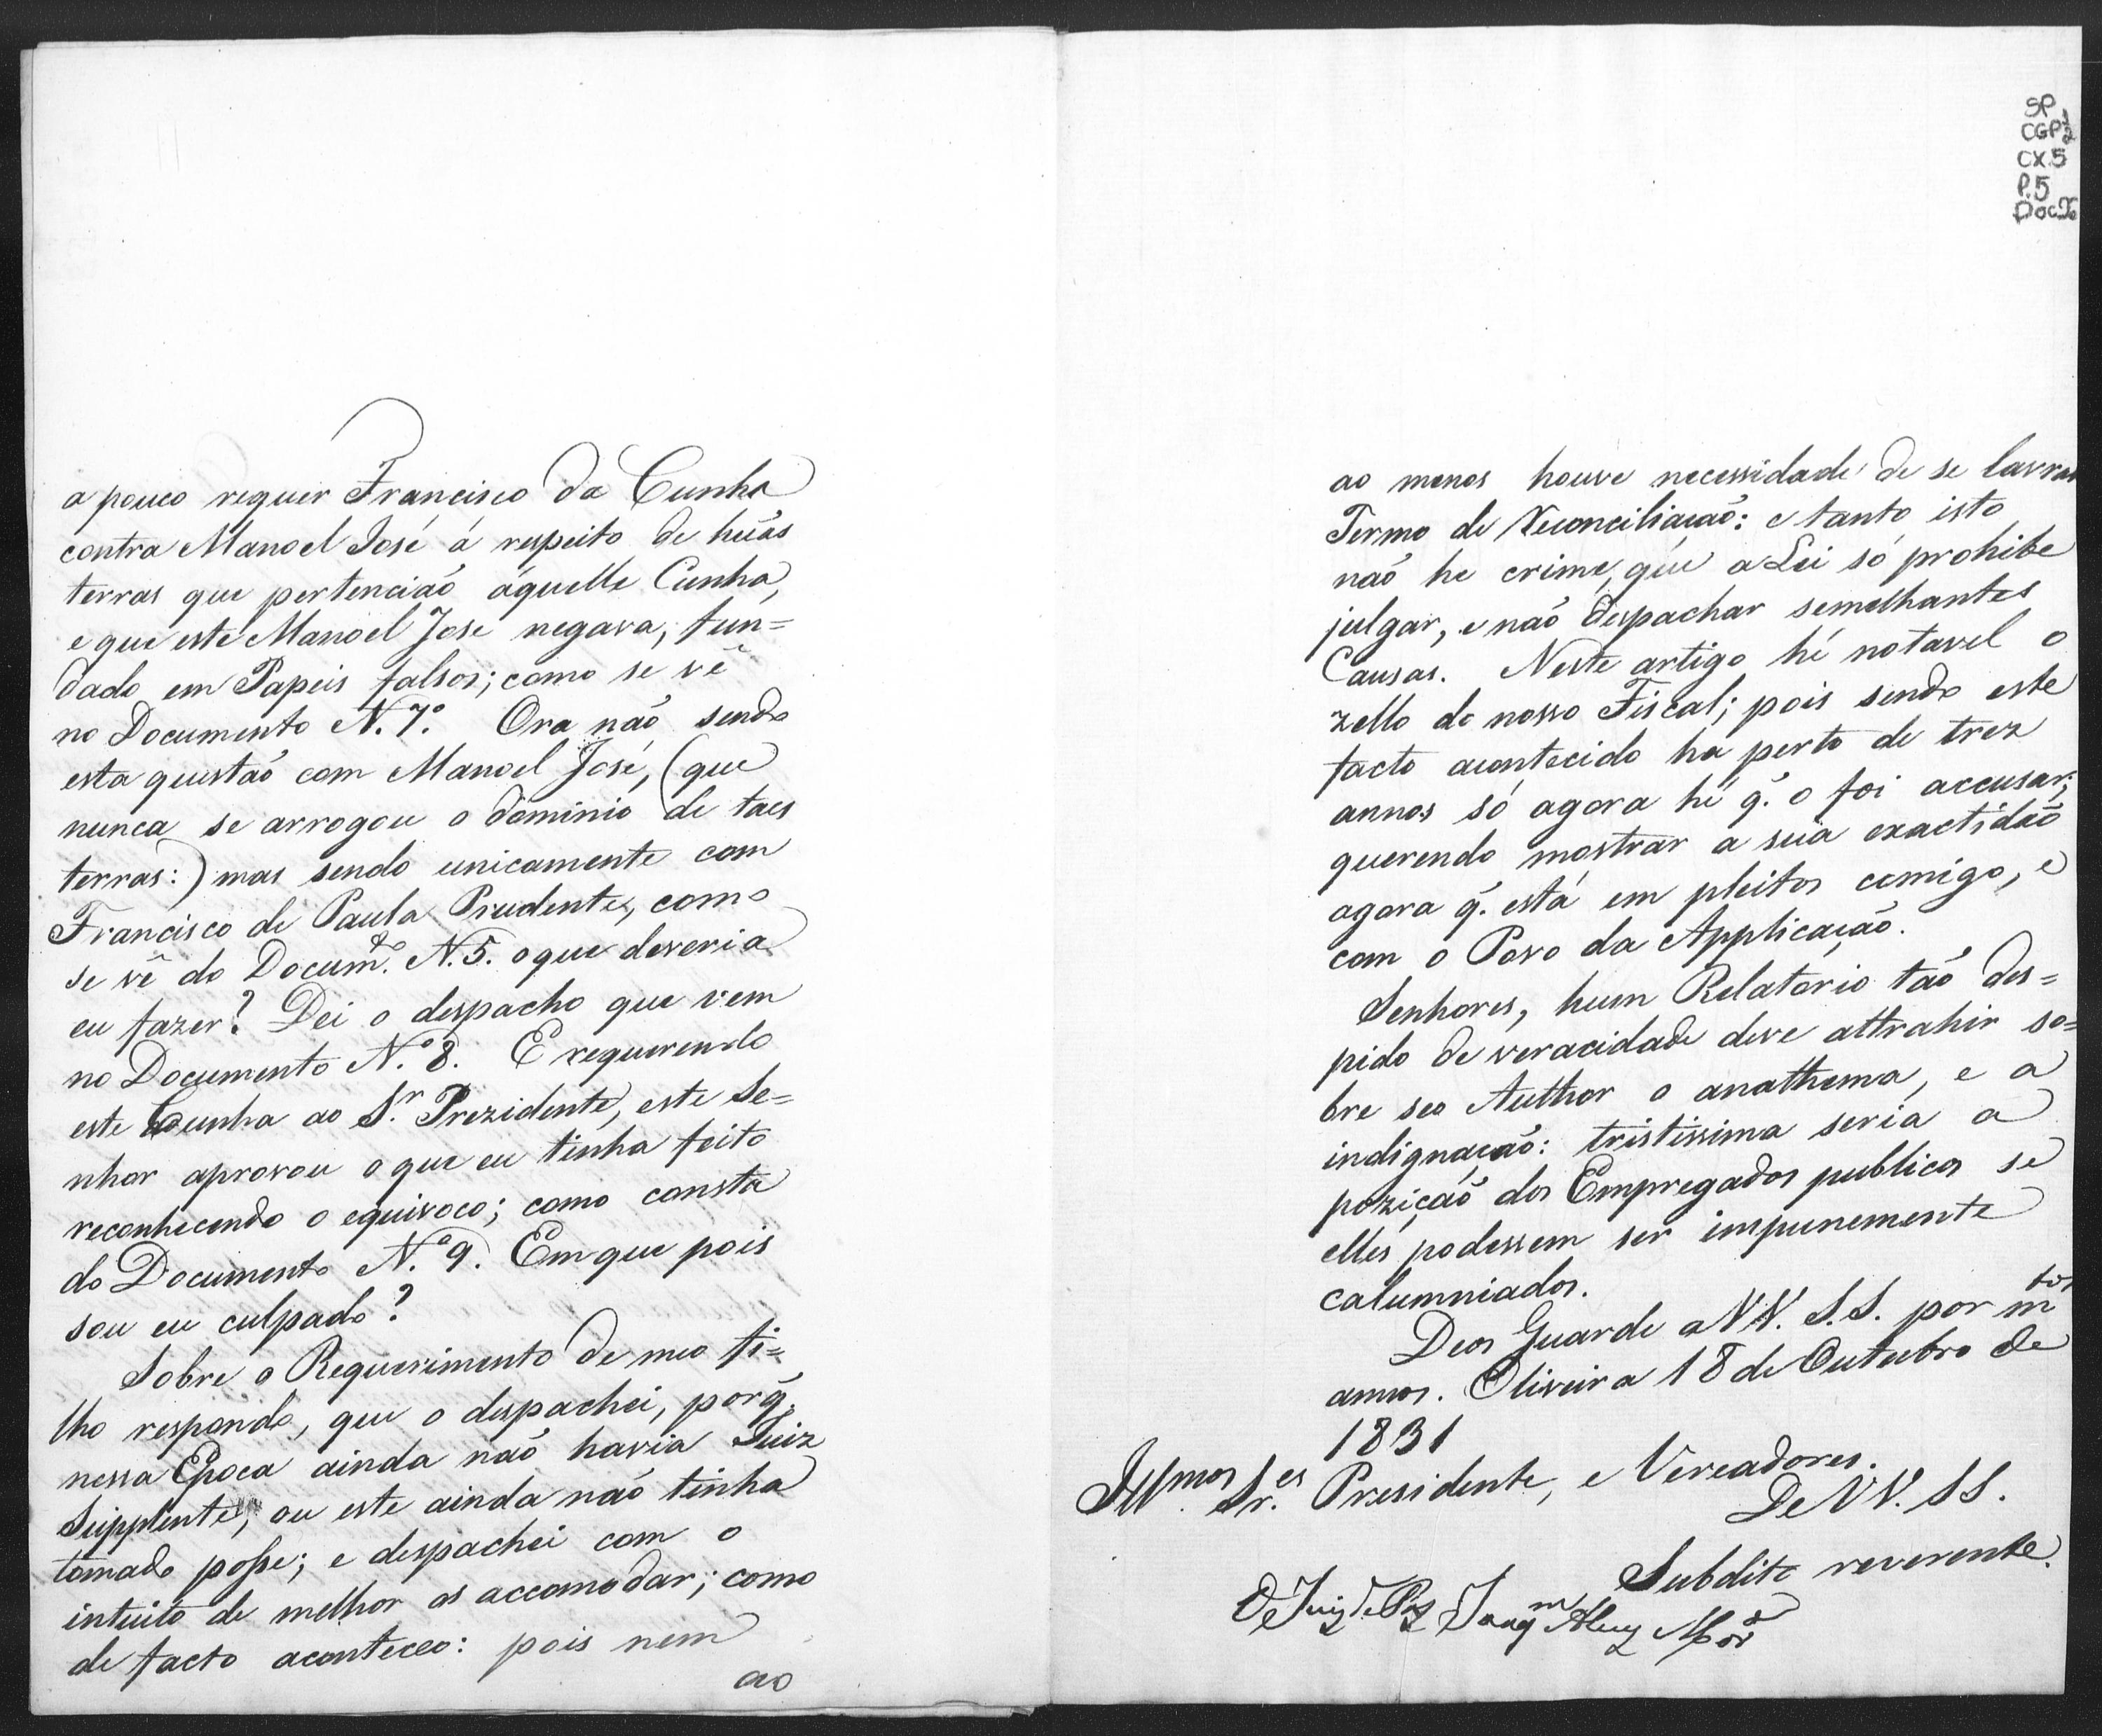 a pouco requer Francisco da Cunha
contra Manoel José á respeito de huãs
terras que pertencião áquelle Cunha,
e que este Manoel Jose negava, fun=
dado em Papeis falsos; como se vê
no Documento N. 7.º Ora não sendo
esta questão com Manoel José, (que
nunca se arrogou o dominio de taes
terras:) mas sendo unicamente com
Francisco de Paula Prudente, como
se vê do Docum.to N. 5. o que deveria
eu fazer? Dei o despacho que vem
no Documento N.º 8. E requerendo
este Cunha ao S.r Prezidente, este Se=
nhor aprovou o que eu tinha feito
reconhecendo o equivoco; como consta
do Documento N.º 9. Em que pois
sou eu culpado?
Sobre o Requerimento de meo fi=
lho respondo, que o despachei, porq̃.
nessa Epoca ainda não havia Juiz
Supplente, ou este ainda não tinha
tomado posse; e despachei com o
intuito de melhor os accomodar; como
de facto aconteceo: pois nem
ao
SP
CGP 1/2
CX.5
P.5
ao menos houve necessidade de se lavrar
Termo de Reconciliação: e tanto isto
não he crime, que a Lei só prohibe
julgar, e não despachar semelhantes
Causas. Neste artigo hé notavel o
zello do nosso Fiscal; pois sendo este
facto acontecido ha perto de trez
annos só agora hé q̃. o foi accusar;
querendo mostrar a sua exactidão
agora q̃. está em pleitos comigo, e
com o Povo da Applicação.
Senhores, hum Relatorio tão des=
pido de veracidade deve attrahir so=
bre seo Author o anathema, e a
indignação: tristissima seria a
pozição dos Empregados publicos se
elles podessem ser impunemente
calumniados.
Deos Guarde a VV. S.S. por m.tos
annos. Oliveira 18 de Outubro de
1831
Ill.mos Sr.es Presidente, e Vereadores.
De VV. SS.
Subdito reverente.
O Juiz de Paz Joaq.m Alvz